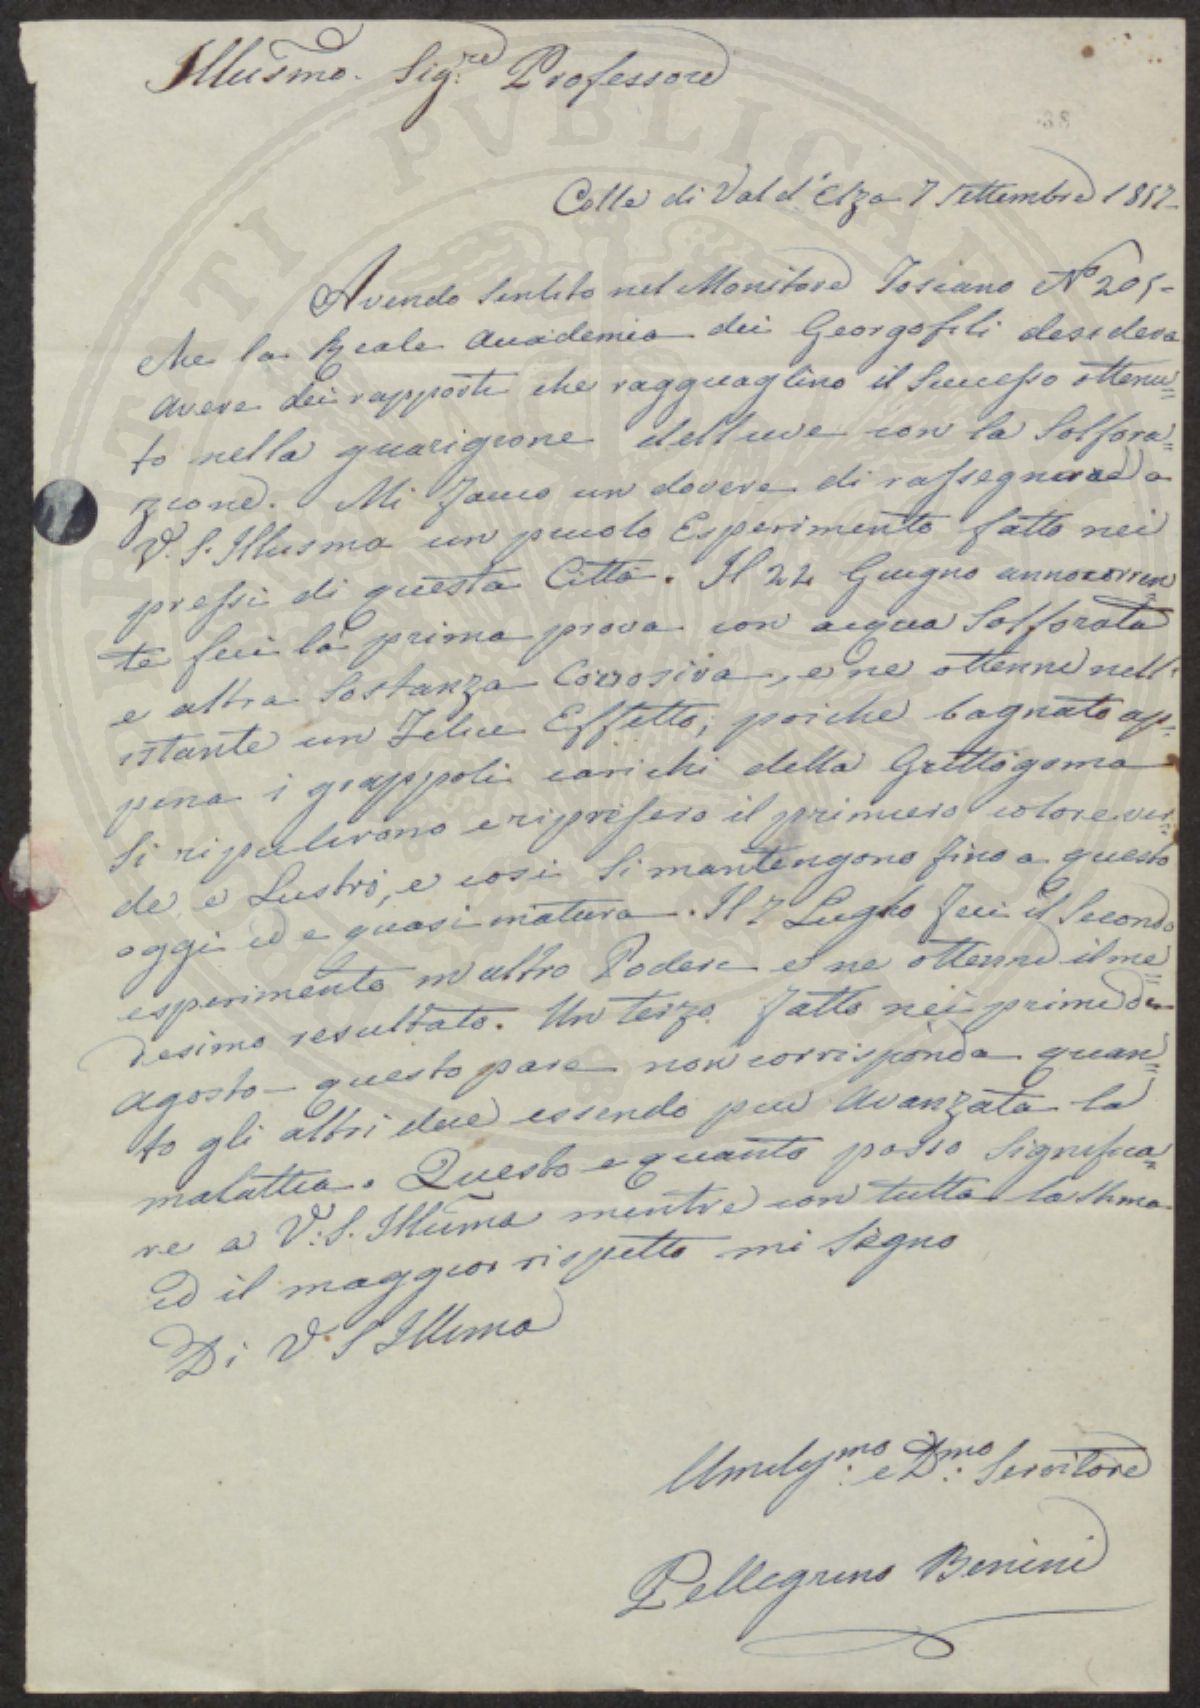 Illusmo. Sig:re Professore
38
Colle di Val d'Elza 7 Settembre 1857
Avendo Sentito nel Monitore Toscano No 205-
che la Reale Accademia dei Georgofili desidera
avere dei rapporti che ragguaglino il Successo ottenu=
to nella guarigione dell uve con la Solfora=
zione. Mi facco un dovere di rassegnare a
V. S. Illusma un piccolo Esperimento fatto nei
pressi di questa Città. Il 22 Giugno anno corren
te feci la prima prova con acqua Solforata
e altra Sostanza Corrosiva, e ne ottenni nell'
istante un Felice Effetto; poiche bagnato ap=
pena i grappoli carichi della Grittogoma
Si ripulirono e ripresero il primiero colore ver=
de e Lustro, e cosi Si mantengono fino a questo
oggi ed e quasi matura. Il 7 Luglio feci il Secondo
esperimento in altro Podere e ne ottenni il me=
desimo resultato. Un terzo fatto nei primi di
Agosto- questo pare non corrisponda quan=
to gli altri due essendo piu avanzata la
malattia. Questo e quanto posso Significa=
re a V. S. Illuma mentre con tutta la Stima
ed il maggior rispetto mi Segno
Di V. S Illuma
Umilis:mo e D:mo Servitore
Pellegrino Benini